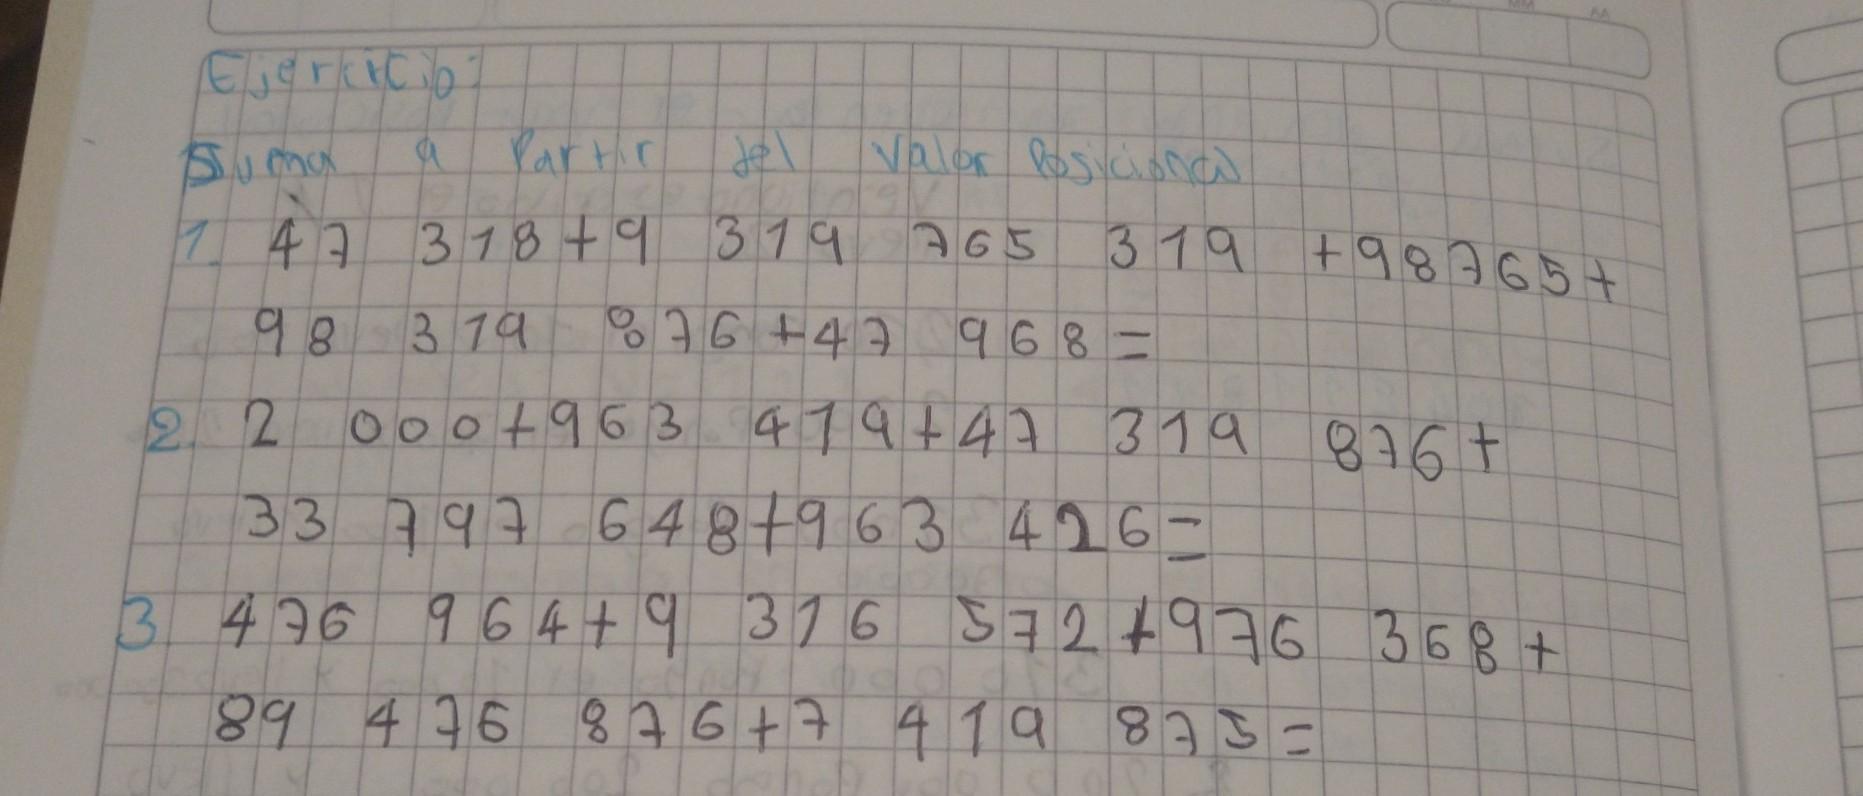 Ejercicio:
Suma a Partir del Valor Posicional
1. 47 318+9 319 765 319 +98765+
98 319 876+47 968=
2. 2 000+963 419+47 319 876+
33 797 648+963 426=
3 476 964+9 316 572+976 368+
89 476 876+7 419 875=